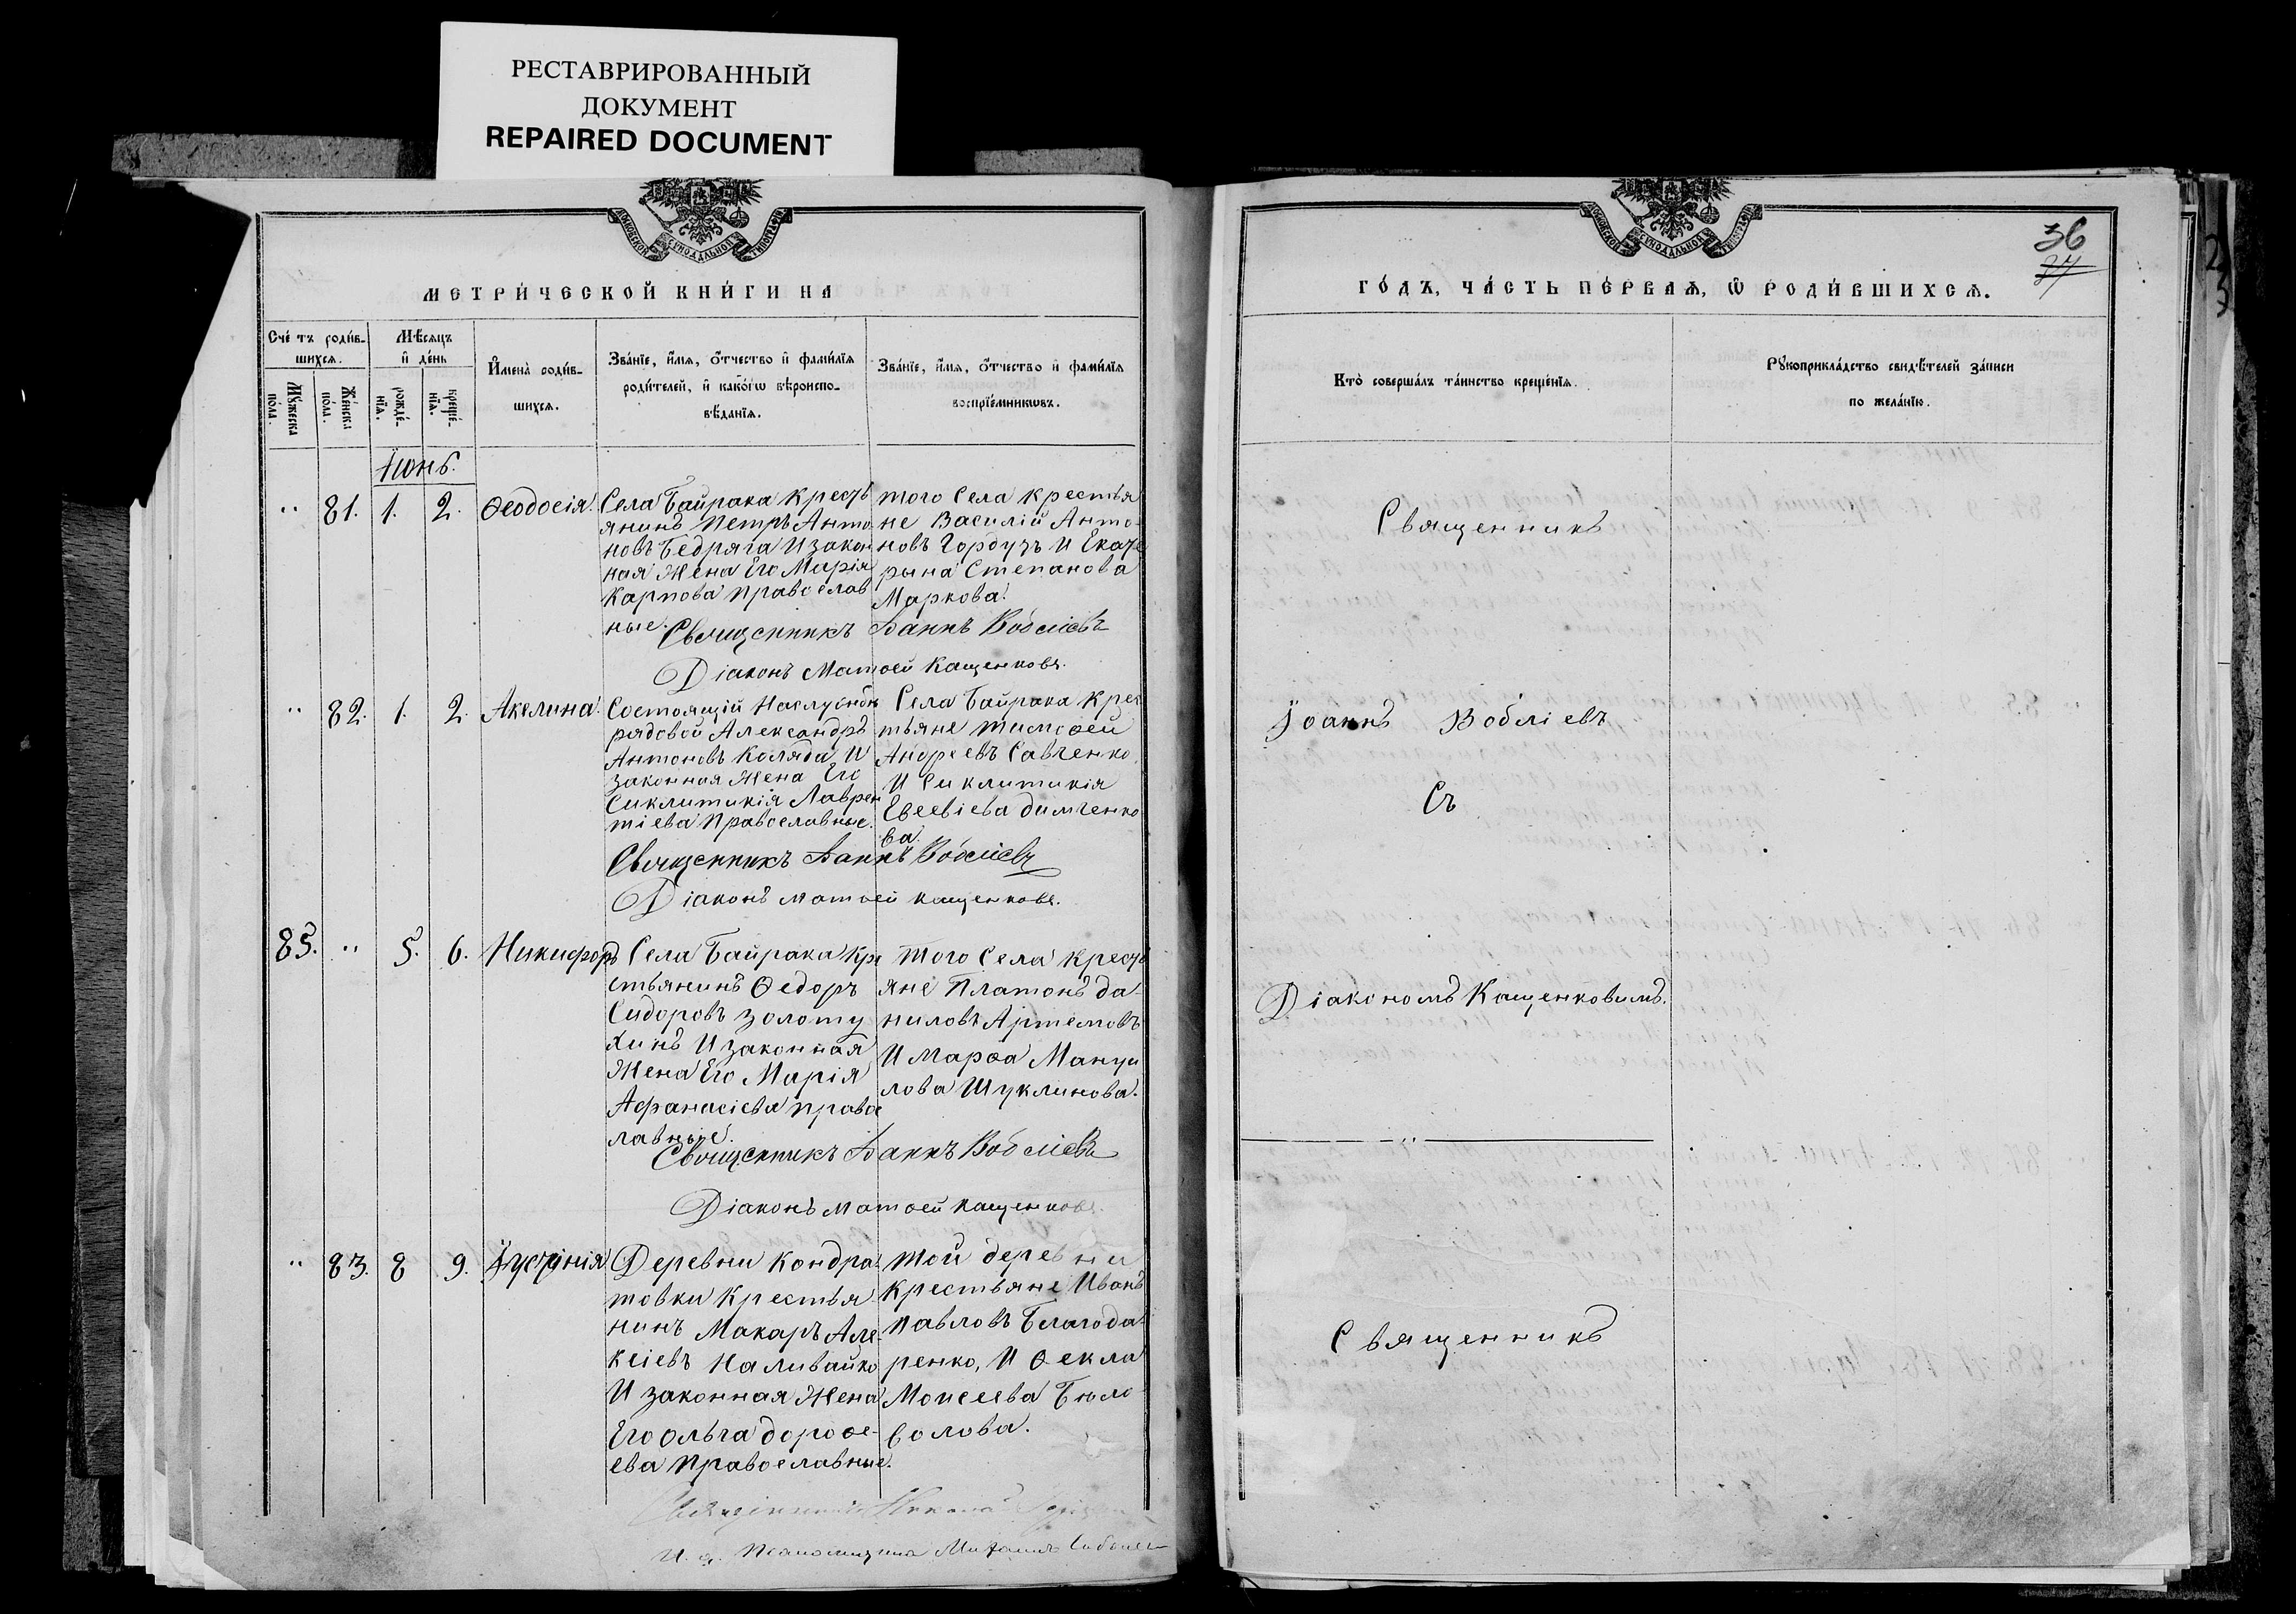 РЕСТАВРИРОВАННЫЙ
ДОКУМЕНТ
REPAIRED DOCUMENT
МОСКОВСКОЙ СѴНОДАЛЬНОЙ ТИПОГРАФІИ
МЕТРИ́ЧЕСКОЙ КНИ́ГИ НА
Сче́тъ роди́в-
шихсѧ.
Мѣ́сѧцъ
и҆ де́нь
И҆мена̀ роди́в-
шихсѧ.
Зва́нїе, и҆́мѧ, ѻ҆́тчество и҆ фами́лїѧ
роди́телей, и҆ како́гѡ вѣроиспо-
вѣ́данїѧ.
Зва́нїе, и҆́мѧ, ѻ҆́тчество и҆ фами́лїѧ
воспрїе́мникѡвъ.
Мꙋ́жеска
по́ла.
Же́нска
по́ла.
рожде́-
нїѧ.
креще́-
нїѧ.
Іюнь.
" 81. 1. 2. Ѳеодосія.
Села Байрака Кресть
янинъ Петръ Анто
новъ Бедряга И закон
ная Жена Его Марія
Карпова Православ
ные.
того Села Крестья
не Василій Анто-
новъ Гордузъ И Екате
рына Степанова
Маркова.
Священникъ Іоаннъ Воблієвъ
Діаконъ Матѳей Кащенковъ.
" 82. 1. 2. Акелина.
Состоящій На службѣ
рядовой Александръ
Антоновъ Коляда, И
законная Жена Его
Сиклитикія Лаврен
тіева Православные.
Села Байрака Крес
тьяне Тимоѳей
Андреевъ Савченко,
И Сиклитикія
Евсевіева Димченко
ва.
Священникъ Іоаннъ Воблієвъ
Діаконъ Матѳей Кащенковъ.
85. " 5. 6. Никифоръ
Села Байрака Кре
стьянинъ Ѳедоръ
Сидоровъ Золоту
хинъ И законная
Жена Его Марія
Афанасіева Правос
лавные.
Того Села Кресть
яне Платонъ Да-
ниловъ Артемовъ
И Марѳа Мануи
лова Шуклинова.
Священникъ Іоаннъ Воблієвъ
Діаконъ Матѳей Кащенковъ.
" 83. 8 9. Іустинія
Деревни Кондра-
товки Крестья
нинъ Макаръ Але-
ксіевъ Наливайко
И законная Жена
Его Ольга Дороѳе-
ева Православные.
Той деревни
Крестьяне Иванъ
Павловъ Благода-
ренко, И Ѳекла
Моисеева Бѣло
волова.
Священникъ
И. д. Псаломщика Михаилъ
МОСКОВСКОЙ СѴНОДАЛЬНОЙ ТИПОГРАФІИ
36
ГО́ДЪ, ЧА́СТЬ ПЕ́РВАѦ, Ѡ҆ РОДИ́ВШИХСѦ.
Кто̀ соверша́лъ та́инство креще́нїѧ.
Рꙋкоприкла́дство свидѣ́телей за́писи
по жела́нїю.
Священникъ
Іоаннъ Воблієвъ
Съ
Діакономъ Кащенковимъ.
Священникъ